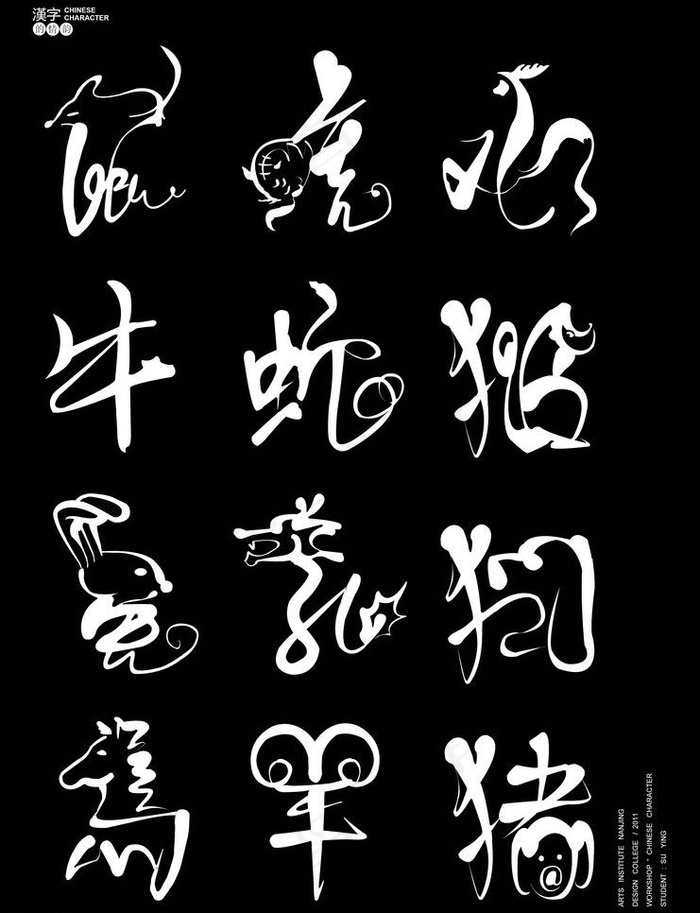 漢字 CHINESE
CHARACTER
的情韵
鼠 虎 鸡
牛 蛇 猴
兔 龍 狗
馬 羊 猪
ARTS INSTITUTE NANJING
DESIGN COLLEGE / 2011
WORKSHOP " CHINESE CHARACTER
STUDENT : SU YING